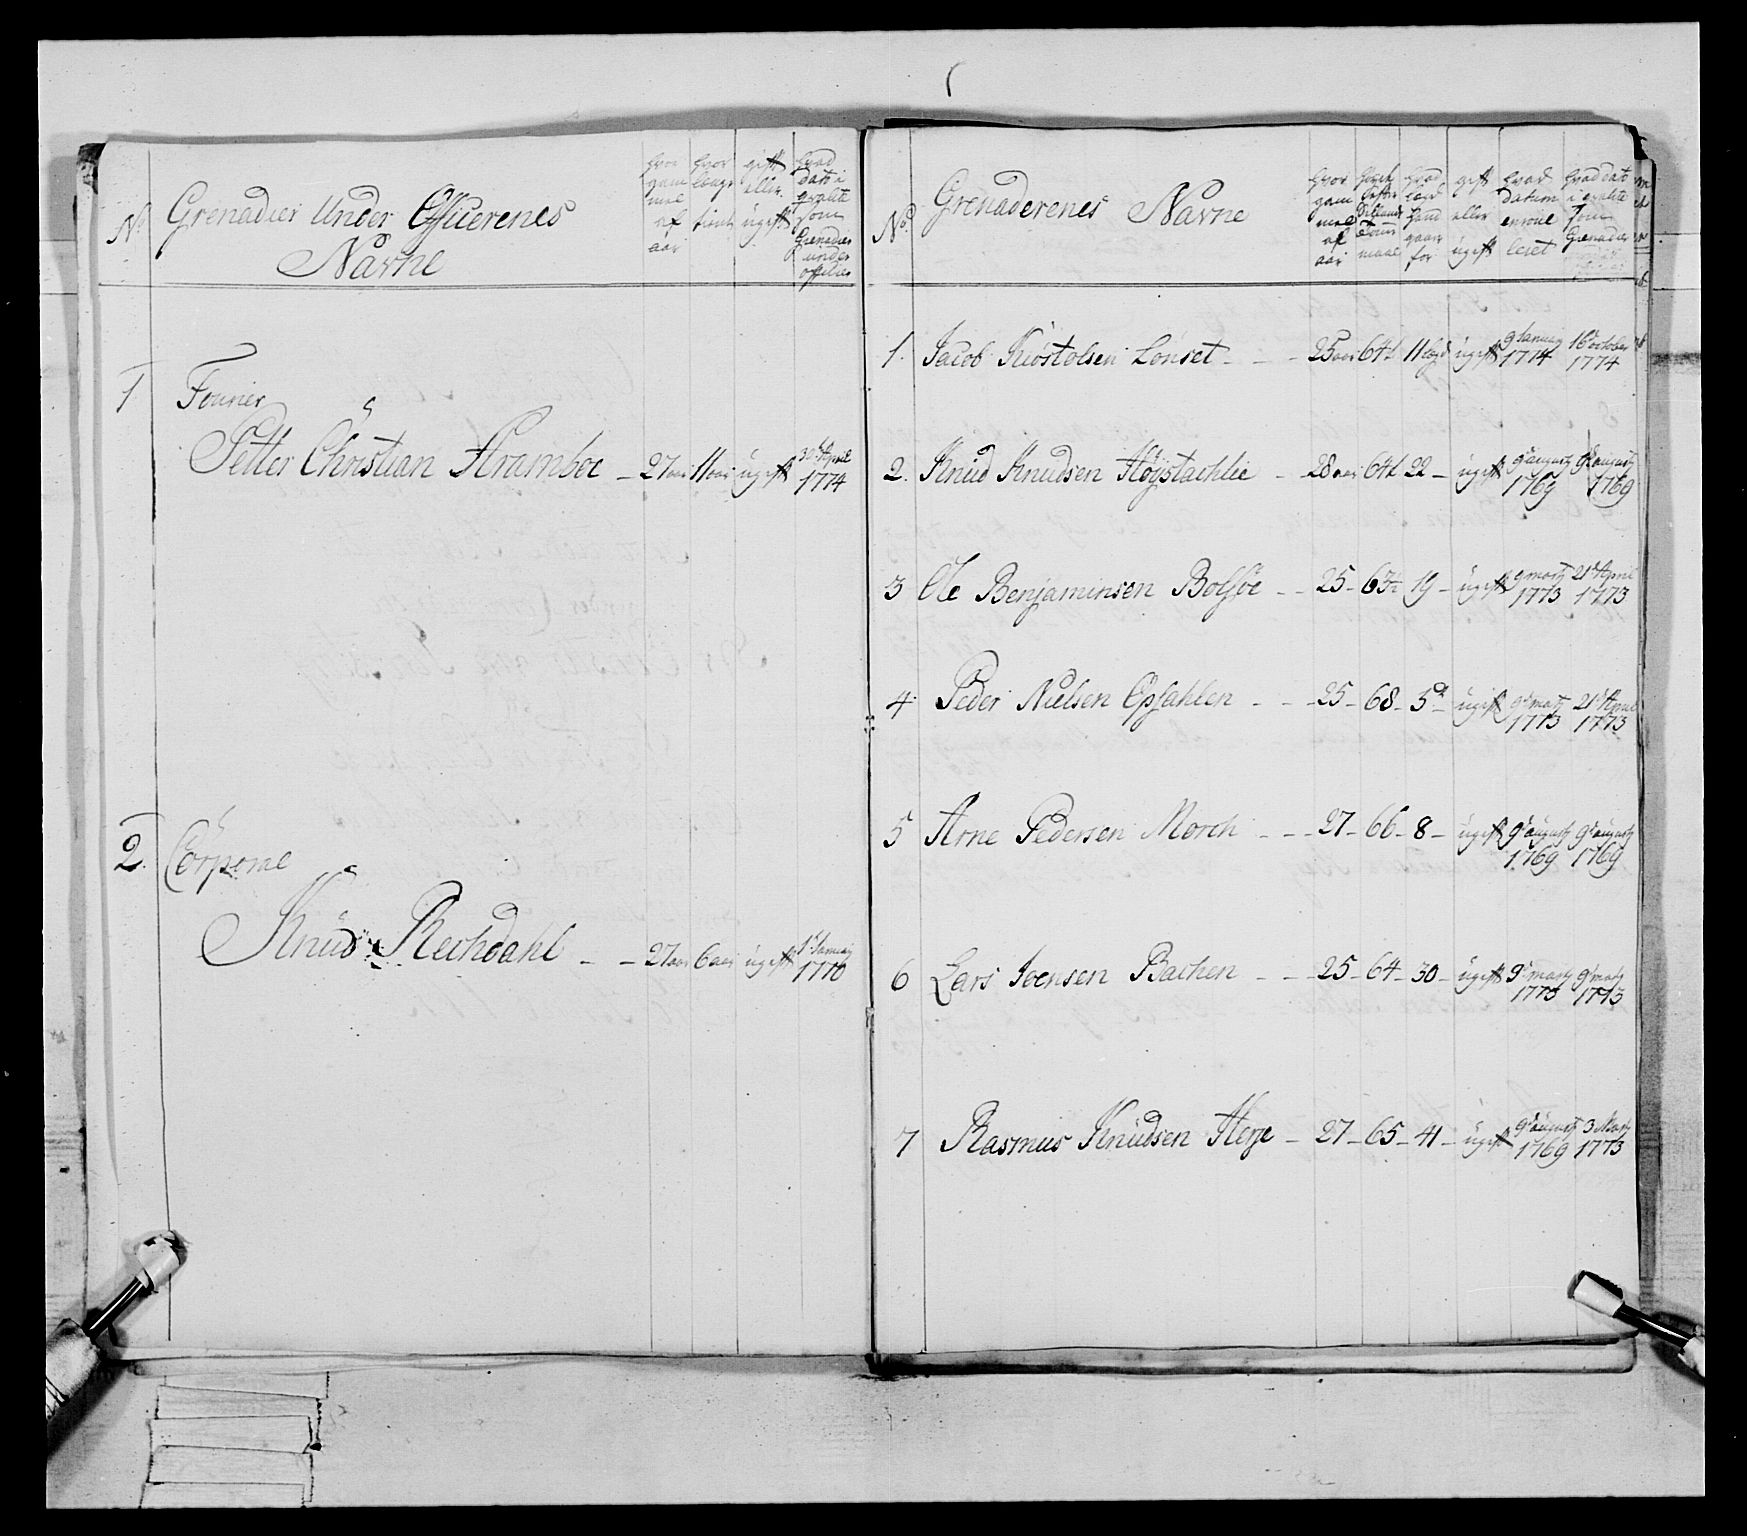 No Grenadier Under Officerenes Navne
hvor gammel af aar
hvor lenge tient
gift eller ugift
hvad dato i qvalite som Grenadier under officier
1 Fourier
Petter Christian Stramboe - 27 aar 11 aar ugift 30d April 1774
2. Corporal
Knud Rechdahl - - 27 aar 6 aar ugift 1d Januarij 1770
No Grenaderenes Navne
hvor gammel af aar
maal
hvad lægd hand gaar for
gift eller ugift
hvad Datum enroulleret
hvad dato i qvalite som Grenadeer
1. Jacob Kiøstolsen Lønset - - - 25 aar 64½ 11 lægd ugift 9 Januarij 1774 16d october 1774
2. Knud Knudsen Høystachlie - 28 aar 64½ 22 - ugift 9d augustj 1769 9d augustj 1769
3 Ole Benjaminsen Bolsøe - - 25 - 63½ 19 - ugift 9 martj 1773 21d April 1773
4 Peder Nielsen Opsahlen - - - 25 - 68 - 5d - ugift 9d martj 1773 21d April 1773
5 Arne Pedersen Morch - - - 27 - 66 - 8 - ugift 9d augustj 1769 9d augustj 1769
6 Lars Joensen Bachen - - - 25 - 64 - 30 - ugift 9d martj 1773 9d martj 1773
7 Rasmus Knudsen Herje - 27 - 65 - 41 - ugift 9d augustj 1769 3 Martj 1773